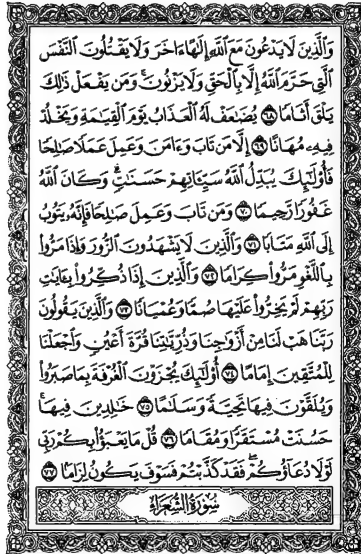 وَالَّذِينَ لَا يَدْعُونَ مَعَ اللَّهِ إِلَٰهًا ءَاخَرَ وَلَا يَقْتُلُونَ النَّفْسَ
الَّتِي حَرَّمَ اللَّهُ إِلَّا بِالْحَقِّ وَلَا يَزْنُونَ ۚ وَمَن يَفْعَلْ ذَٰلِكَ
يَلْقَ أَثَامًا ٦٨ يُضَٰعَفْ لَهُ الْعَذَابُ يَوْمَ الْقِيَٰمَةِ وَيَخْلُدْ
فِيهِۦ مُهَانًا ٦٩ إِلَّا مَن تَابَ وَءَامَنَ وَعَمِلَ عَمَلًا صَٰلِحًا
فَأُو۟لَٰٓئِكَ يُبَدِّلُ اللَّهُ سَيِّـَٔاتِهِمْ حَسَنَٰتٍ ۗ وَكَانَ اللَّهُ
غَفُورًا رَّحِيمًا ٧٠ وَمَن تَابَ وَعَمِلَ صَٰلِحًا فَإِنَّهُۥ يَتُوبُ
إِلَى اللَّهِ مَتَابًا ٧١ وَالَّذِينَ لَا يَشْهَدُونَ الزُّورَ وَإِذَا مَرُّوا۟
بِاللَّغْوِ مَرُّوا۟ كِرَامًا ٧٢ وَالَّذِينَ إِذَا ذُكِّرُوا۟ بِـَٔايَٰتِ
رَبِّهِمْ لَمْ يَخِرُّوا۟ عَلَيْهَا صُمًّا وَعُمْيَانًا ٧٣ وَالَّذِينَ يَقُولُونَ
رَبَّنَا هَبْ لَنَا مِنْ أَزْوَٰجِنَا وَذُرِّيَّٰتِنَا قُرَّةَ أَعْيُنٍ وَاجْعَلْنَا
لِلْمُتَّقِينَ إِمَامًا ٧٤ أُو۟لَٰٓئِكَ يُجْزَوْنَ الْغُرْفَةَ بِمَا صَبَرُوا۟
وَيُلَقَّوْنَ فِيهَا تَحِيَّةً وَسَلَٰمًا ٧٥ خَٰلِدِينَ فِيهَا ۚ
حَسُنَتْ مُسْتَقَرًّا وَمُقَامًا ٧٦ قُلْ مَا يَعْبَؤُا۟ بِكُمْ رَبِّي
لَوْلَا دُعَآؤُكُمْ ۖ فَقَدْ كَذَّبْتُمْ فَسَوْفَ يَكُونُ لِزَامًا ٧٧
سُورَةُ الشُّعَرَاءِ